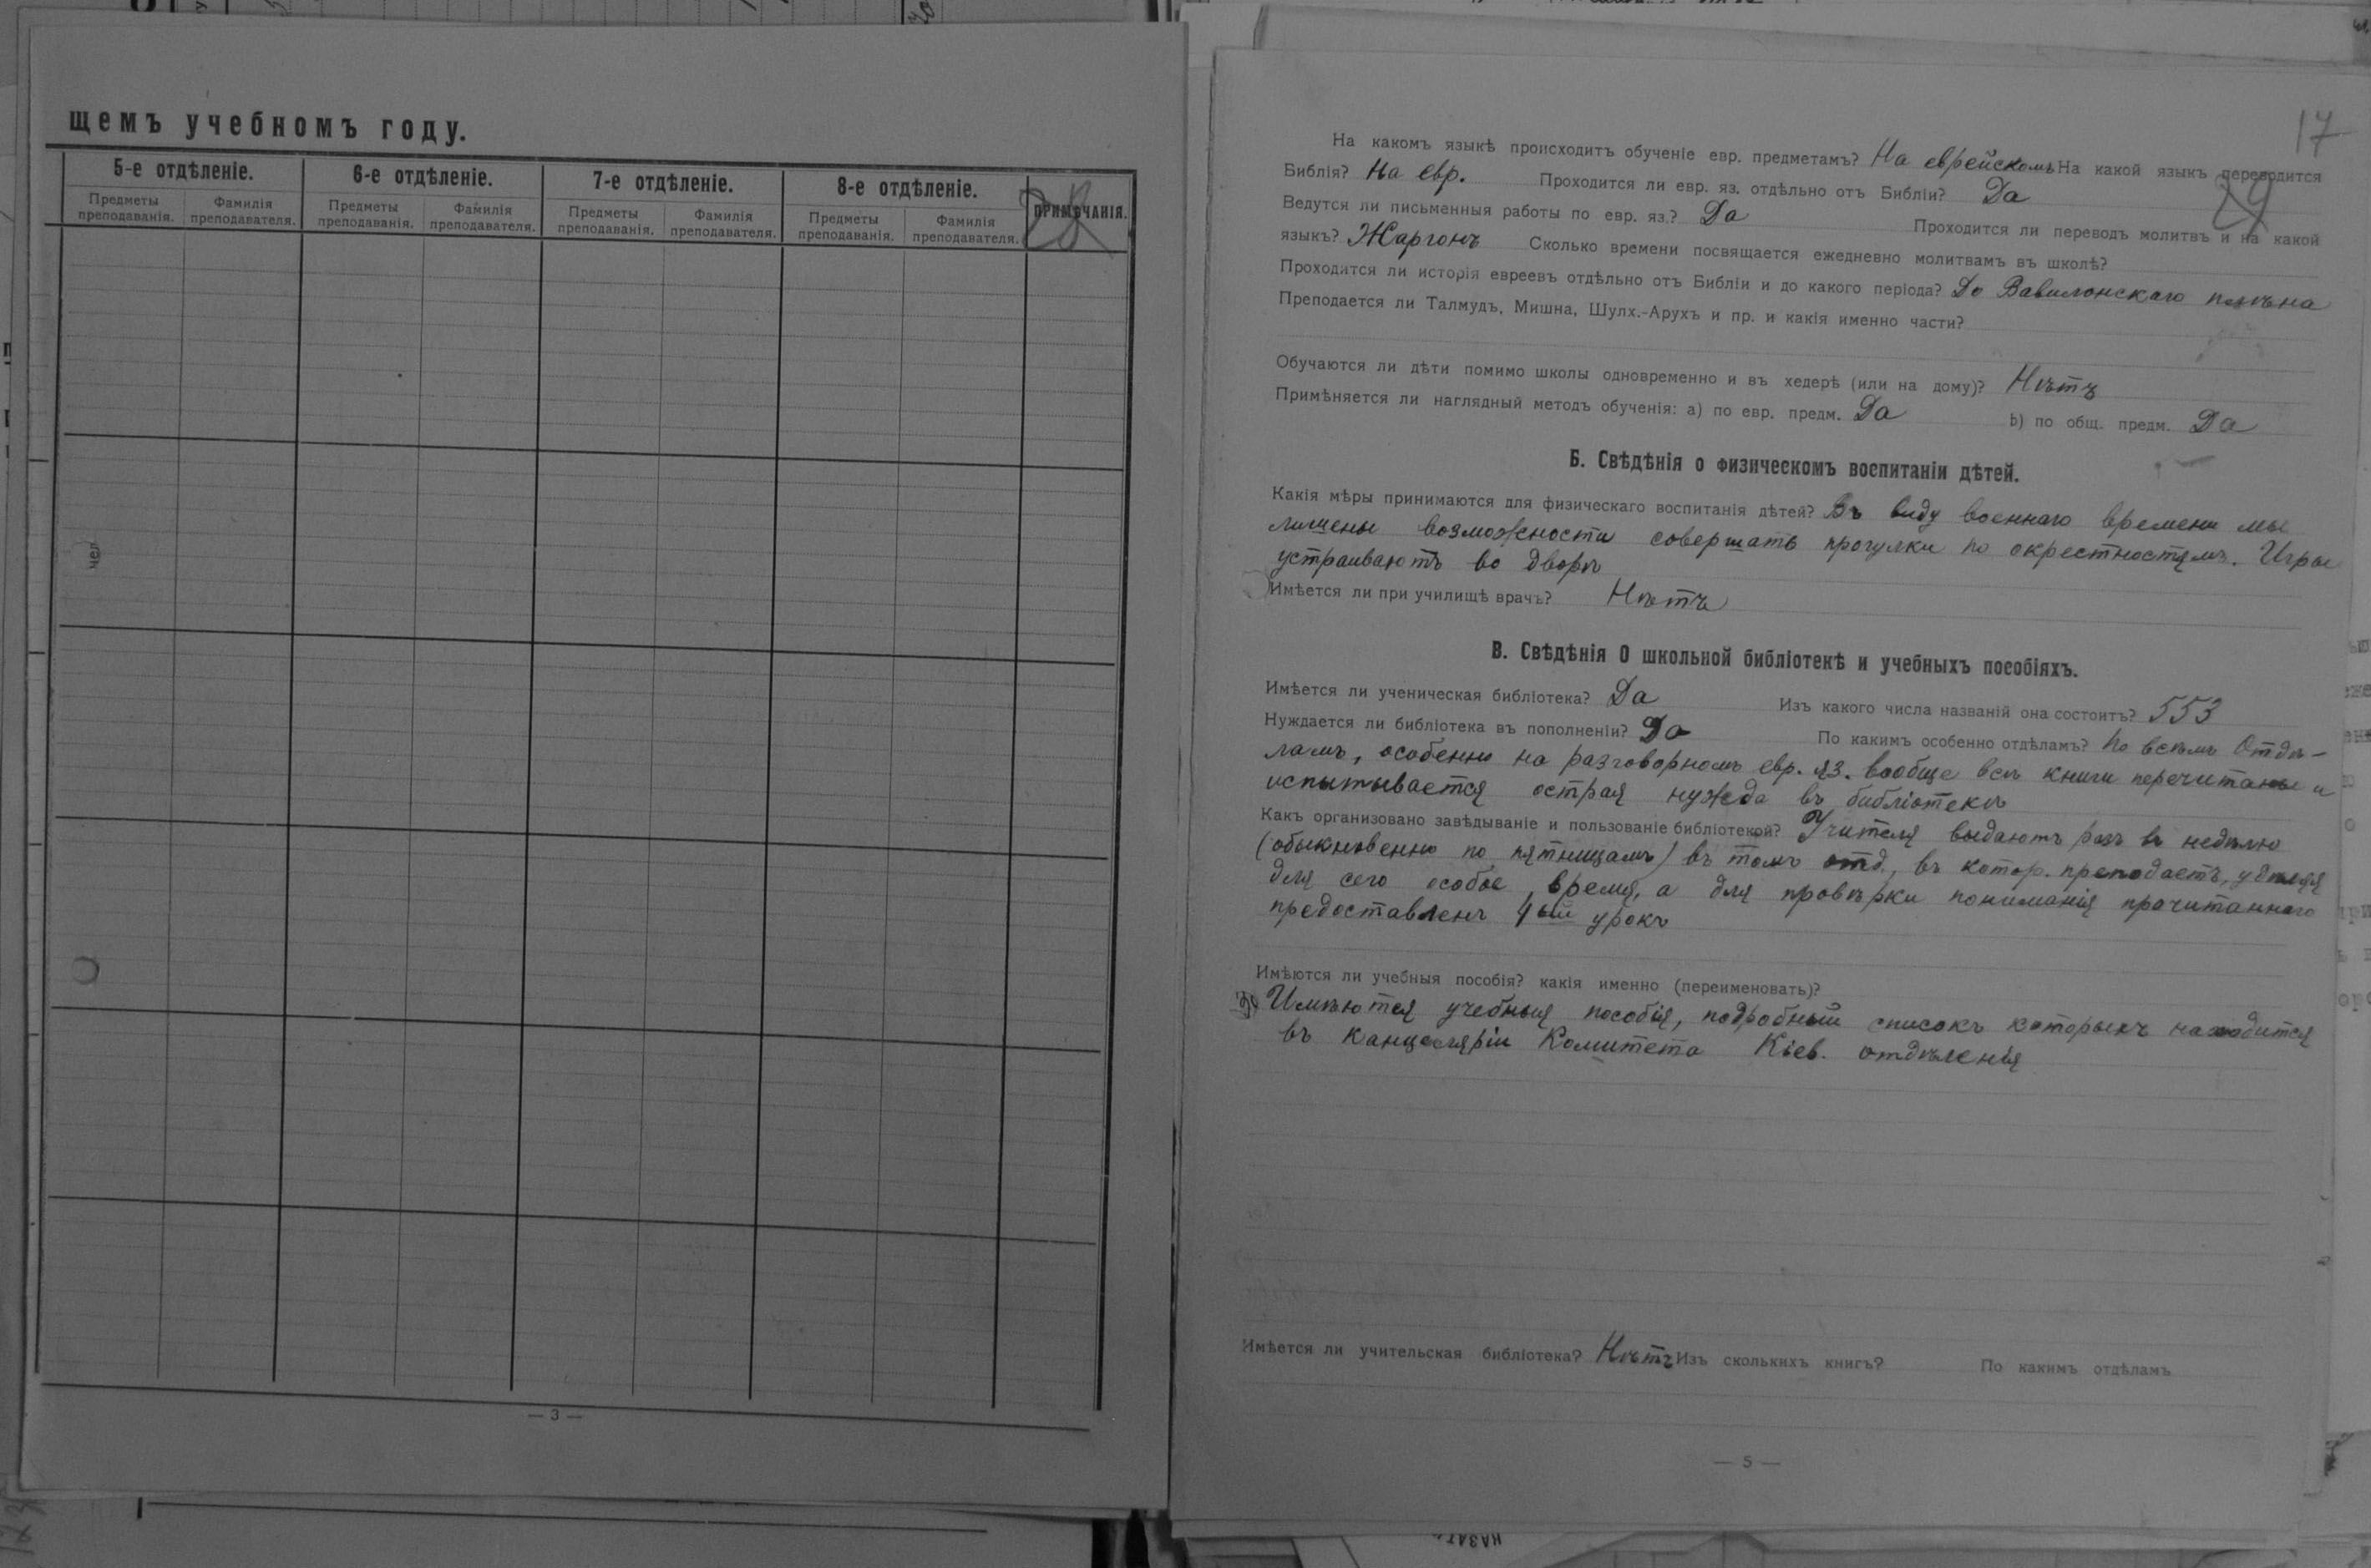 щемъ учебномъ году.
5-е отдѣленіе. 6-е отдѣленіе. 7-е отдѣленіе. 8-е отдѣленіе. ПРИМѢЧАНІЯ.
Предметы преподаванія. Фамилія преподавателя. Предметы преподаванія. Фамилія преподавателя. Предметы преподаванія. Фамилія преподавателя. Предметы преподаванія. Фамилія преподавателя.
28
чел
— 3 —
17
29
На какомъ языкѣ происходитъ обученіе евр. предметамъ? На еврейскомъ На какой языкъ переводится
Библія? На евр. Проходится ли евр. яз. отдѣльно отъ Библіи? Да
Ведутся ли письменныя работы по евр. яз.? Да Проходится ли переводъ молитвъ и на какой
языкъ? Жаргонъ Сколько времени посвящается ежедневно молитвамъ въ школѣ?
Проходится ли исторія евреевъ отдѣльно отъ Библіи и до какого періода? До Вавилонскаго плѣна
Преподается ли Талмудъ, Мишна, Шулх.-Арухъ и пр. и какія именно части?
Обучаются ли дѣти помимо школы одновременно и въ хедерѣ (или на дому)? Нѣтъ
Примѣняется ли наглядный методъ обученія: а) по евр. предм. Да b) по общ. предм. Да
Б. Свѣдѣнія о физическомъ воспитаніи дѣтей.
Какія мѣры принимаются для физическаго воспитанія дѣтей? Въ виду военнаго времени мы
лишены возможности совершать прогулки по окрестностямъ. Игры
устраиваютъ во дворѣ
Имѣется ли при училищѣ врачъ? Нѣтъ
В. Свѣдѣнія О школьной библіотекѣ и учебныхъ пособіяхъ.
Имѣется ли ученическая библіотека? Да Изъ какого числа названій она состоитъ? 553
Нуждается ли библіотека въ пополненіи? Да По какимъ особенно отдѣламъ? По всѣмъ отдѣ-
ламъ, особенно на разговорномъ евр. яз. вообще всѣ книги перечитаны и
испытывается острая нужда въ библіотекѣ
Какъ организовано завѣдываніе и пользованіе библіотекой? Учителя выдаютъ разъ въ недѣлю
(обыкновенно по пятницамъ) въ томъ отд., въ котор. преподаетъ, удѣляя
для сего особое время, а для провѣрки пониманія прочитаннаго
предоставленъ 4ый урокъ
Имѣются ли учебныя пособія? какія именно (переименовать)?
Имѣются учебныя пособія, подробный списокъ которыхъ находится
въ канцеляріи Комитета Кіев. отдѣленія
Имѣется ли учительская библіотека? Нѣтъ Изъ сколькихъ книгъ? По какимъ отдѣламъ
— 5 —